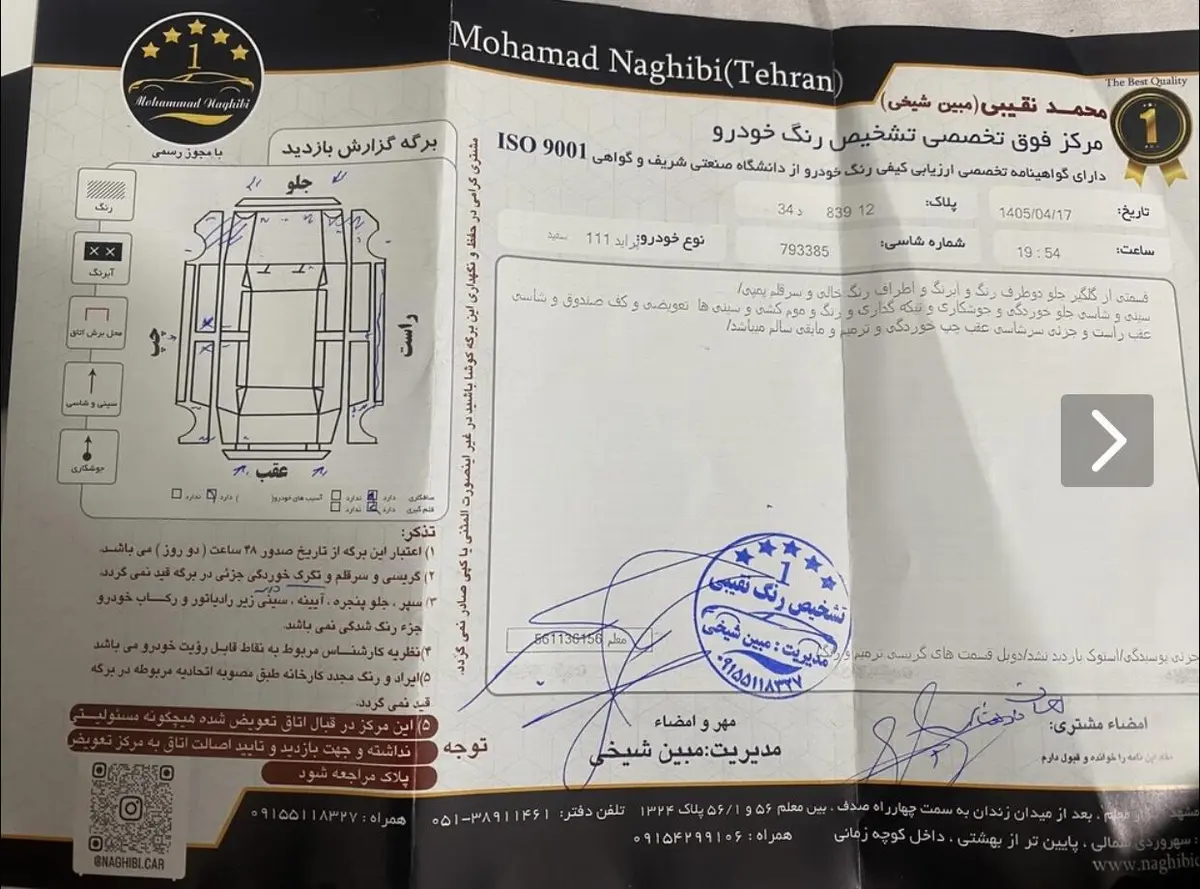 Mohamad Naghibi(Tehran)
The Best Quality
1
محمد نقیبی(مبین شیخی)
مرکز فوق تخصصی تشخیص رنگ خودرو
دارای گواهینامه تخصصی ارزیابی کیفی رنگ خودرو از دانشگاه صنعتی شریف و گواهی ISO 9001
تاریخ: 1405/04/17
پلاک: 12 839 د 34
ساعت: 19 : 54
شماره شاسی: 793385
نوع خودرو: پراید 111 سفید
قسمتی از گلگیر جلو دوطرف رنگ و آبرنگ و اطراف رنگ خالی و سرقلم پمپی/
سینی و شاسی جلو خوردگی و جوشکاری و تیکه گذاری و رنگ و موم کشی و سینی ها تعویضی و کف صندوق و شاسی
عقب راست و جزئی سرشاسی عقب چپ خوردگی و ترمیم و مابقی سالم میباشد/
جزئی پوسیدگی/استوک بازدید نشد/دوبل قسمت های گریسی ترمیم و رنگ/
معلم 561136156
1
تشخیص رنگ نقیبی
مدیریت : مبین شیخی
۰۹۱۵۵۱۱۸۳۲۷
مهر و امضاء
مدیریت:مبین شیخی
امضاء مشتری:
مفاد این نامه را خوانده و قبول دارم
1
Mohammad Naghibi
با مجوز رسمی
برگه گزارش بازدید
رنگ
آبرنگ
محل برش اتاق
سینی و شاسی
جوشکاری
جلو
چپ
راست
عقب
صافکاری دارد ندارد آسیب های خودرو( ) دارد ندارد
قلم گیری دارد ندارد
مشتری گرامی در حفظ و نگهداری این برگه کوشا باشید در غیر اینصورت المثنی یا کپی صادر نمی گردد.
تذکر:
۱) اعتبار این برگه از تاریخ صدور ۴۸ ساعت ( دو روز ) می باشد.
۲) گریسی و سرقلم و تگرگ خوردگی جزئی در برگه قید نمی گردد.
۳) سپر ، جلو پنجره ، آیینه ، سینی زیر رادیاتور و رکاب خودرو
جزء رنگ شدگی نمی باشد.
۴) نظریه کارشناس مربوط به نقاط قابل رؤیت خودرو می باشد
۵) ایراد و رنگ مجدد کارخانه طبق مصوبه اتحادیه مربوطه در برگه
قید نمی گردد.
۵) این مرکز در قبال اتاق تعویض شده هیچگونه مسئولیتی
نداشته و جهت بازدید و تایید اصالت اتاق به مرکز تعویض
پلاک مراجعه شود
توجه
@NAGHIBI.CAR
همراه : ۰۹۱۵۵۱۱۸۳۲۷
معلم ، بعد از میدان زندان به سمت چهارراه صدف ، بین معلم ۵۶ و ۵۶/۱ پلاک ۱۳۲۴ تلفن دفتر: ۰۵۱-۳۸۹۱۱۴۶۱
سهروردی شمالی ، پایین تر از بهشتی ، داخل کوچه زمانی همراه : ۰۹۱۵۴۲۹۹۱۰۶
www.naghibi